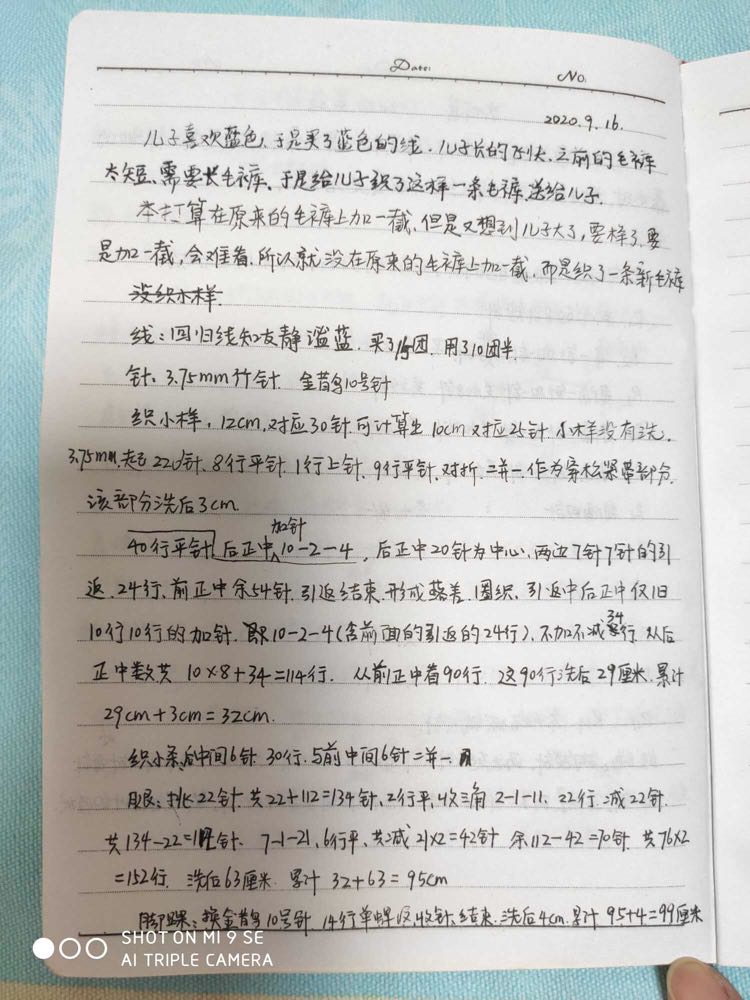 Date:
NO.
2020.9.16.
儿子喜欢蓝色,于是买了蓝色的线.儿子长的飞快.之前的毛裤
太短,需要长毛裤.于是给儿子织了这样一条毛裤送给儿子.
本打算在原来的毛裤上加一截,但是又想到儿子大了,要样了,要
是加一截,会难看.所以就没在原来的毛裤上加一截,而是织了一条新毛裤
没织小样.
线:回归线知友静谧蓝.买了15团.用了10团半.
针:3.75mm竹针.金昔鸟10号针
织小样,12cm,对应30针.可计算出10cm对应25针.小样没有洗.
3.75mm.起220针.8行平针.1行上针.9行平针.对折.二并一.作为穿松紧带部分.
该部分洗后3cm.
加针
40行平针 后正中 10-2-4,后正中20针为中心,两边7针7针的引
返.24行.前正中余54针.引返结束.形成落差.圈织.引返中后正中仅旧
10行10行的加针.即10-2-4(含前面的引返的24行).不加不减34行.从后
正中数共 10×8+34=114行. 从前正中看90行.这90行洗后29厘米.累计
29cm+3cm=32cm.
织小条,后中间6针.30行.与前中间6针二并一.
腿:挑22针.共22+112=134针,2行平,收三角 2-1-11. 22行.减22针.
共134-22=112针. 7-1-21,6行平,共减 21×2=42针 余112-42=70针.共76×2
=152行. 洗后63厘米.累计 32+63=95cm
脚踝:换金昔鸟10号针 14行单螺纹,收针,结束.洗后4cm.累计 95+4=99厘米
SHOT ON MI 9 SE
AI TRIPLE CAMERA